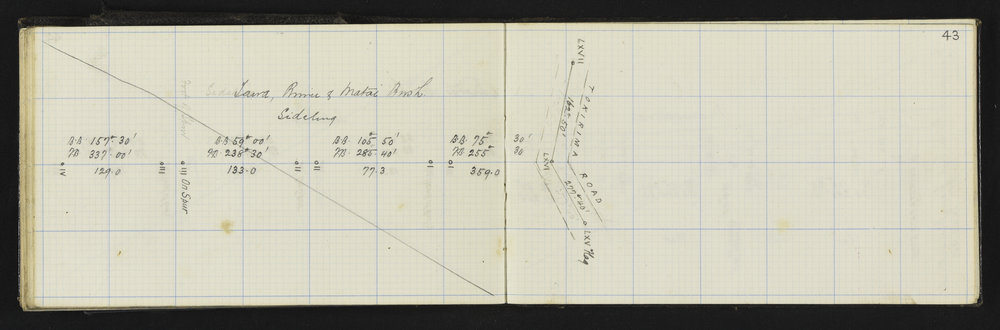 43
Tawa, Rimu & Matai Bush
Sideling
B.B. 157° 30'
F.B. 337° 00'
129.0
B.B. 59° 00'
F.B. 238° 30'
133.0
B.B. 105° 50'
F.B. 285° 40'
77.3
B.B. 75° 30'
F.B. 255° 30
359.0
IV
III
III On Spur
II
II
I
I
LXVII
162° 50'
TOKIRIMA ROAD
LXVI
277° 40'
LXV Peg